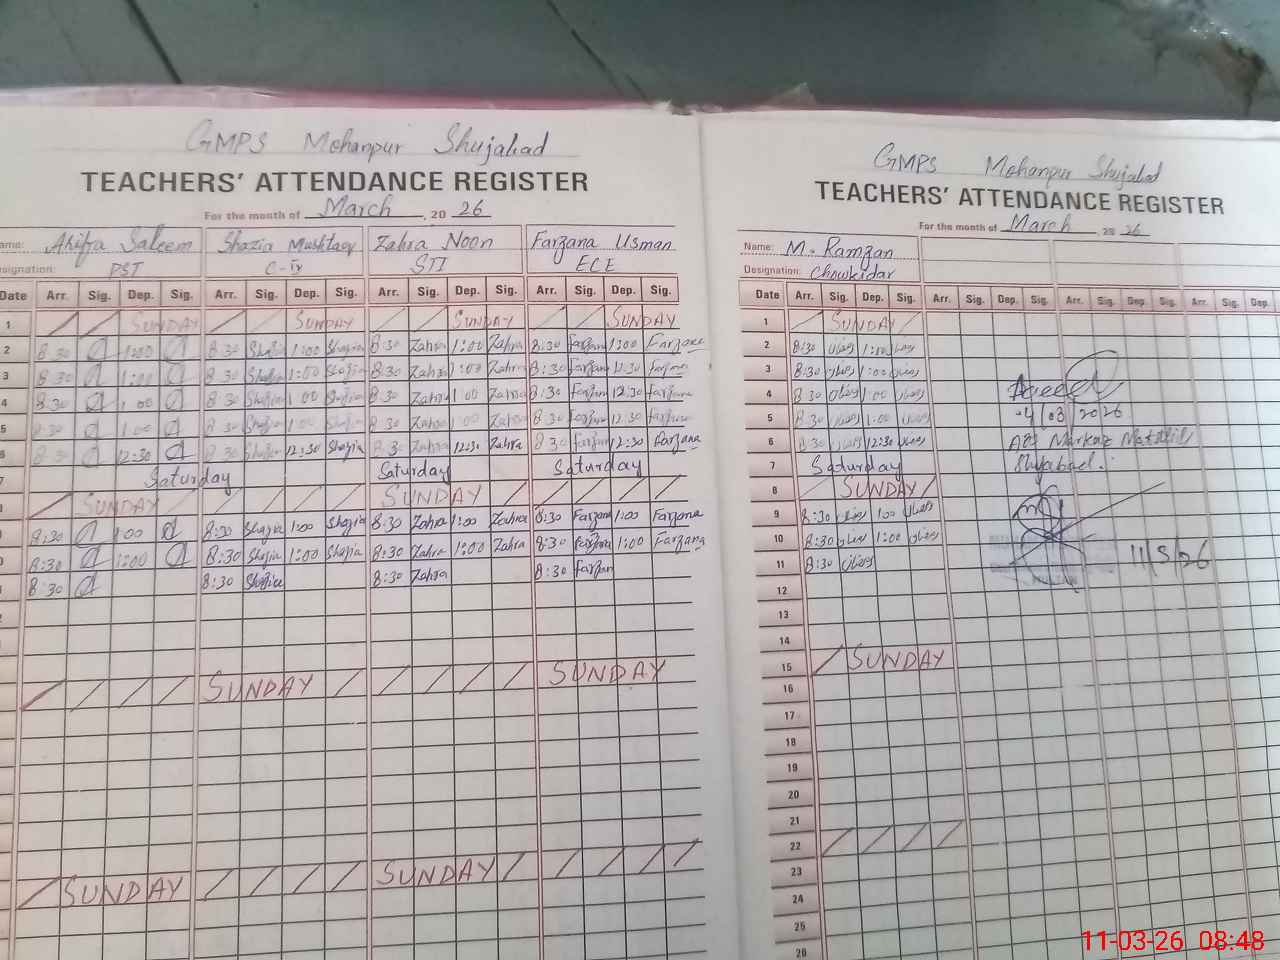 GMPS Mohanpur Shujabad
TEACHERS' ATTENDANCE REGISTER
For the month of March, 20 26
Name: Saleem Shazia Mushtaq Zahra Noon Farzana Usman
Designation: PST C-IV STI ECE
Date Arr. Sig. Dep. Sig. Arr. Sig. Dep. Sig. Arr. Sig. Dep. Sig. Arr. Sig. Dep. Sig.
1 SUNDAY SUNDAY SUNDAY SUNDAY
2 8:30 1:00 8:30 Shazia 1:00 Shazia 8:30 Zahra 1:00 Zahra 8:30 Farzana 1:00 Farzana
3 8:30 1:00 8:30 Shazia 1:00 Shazia 8:30 Zahra 1:00 Zahra 8:30 Farzana 12:30 Farzana
4 8:30 1:00 8:30 Shazia 1:00 Shazia 8:30 Zahra 1:00 Zahra 8:30 Farzana 12:30 Farzana
5 8:30 1:00 8:30 Shazia 1:00 Shazia 8:30 Zahra 1:00 Zahra 8:30 Farzana 12:30 Farzana
6 8:30 12:30 8:30 Shazia 12:30 Shazia 8:30 Zahra 12:30 Zahra 8:30 Farzana 12:30 Farzana
7 Saturday Saturday Saturday
SUNDAY SUNDAY
8:30 1:00 8:30 Shazia 1:00 Shazia 8:30 Zahra 1:00 Zahra 8:30 Farzana 1:00 Farzana
8:30 1:00 8:30 Shazia 1:00 Shazia 8:30 Zahra 1:00 Zahra 8:30 Farzana 1:00 Farzana
8:30 8:30 Shazia 8:30 Zahra 8:30 Farzan
SUNDAY SUNDAY
SUNDAY SUNDAY
GMPS Mohanpur Shujabad
TEACHERS' ATTENDANCE REGISTER
For the month of March 20 26
Name: M. Ramzan
Designation: Chowkidar
Date Arr. Sig. Dep. Sig. Arr. Sig. Dep. Sig. Arr. Sig. Dep. Sig. Arr. Sig. Dep.
1 SUNDAY
2 8:30 1:00
3 8:30 1:00
4 8:30 1:00
5 8:30 1:00 4/03/2026
6 8:30 12:30 Markaz
7 Saturday Shujabad.
8 SUNDAY
9 8:30 1:00
10 8:30 1:00
11 8:30 11/3/26
12
13
14
15 SUNDAY
16
17
18
19
20
21
22
23
24
25
26
11-03-26 08:48